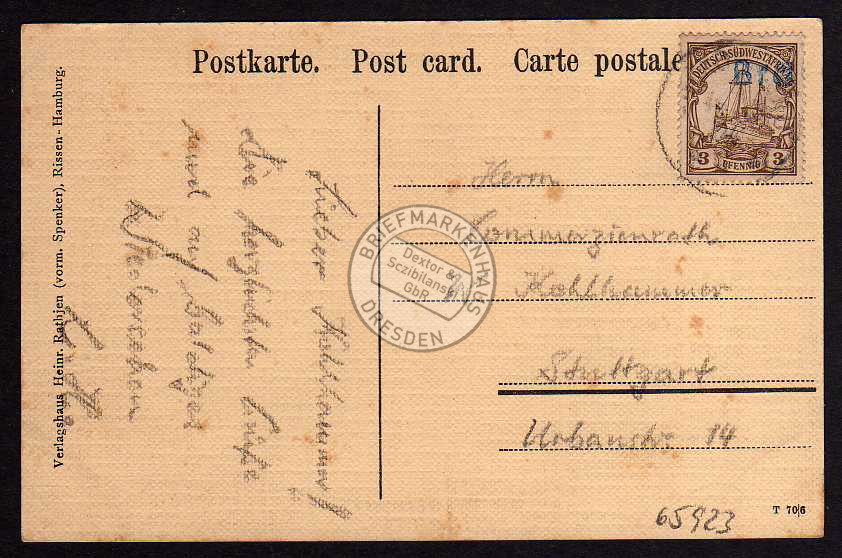 Postkarte. Post card. Carte postale
DEUTSCH-SÜDWESTAFRIKA
3 PFENNIG 3
Verlagshaus Heinr. Rathjen (vorm. Spenker), Rissen-Hamburg.
Lieber Kohlhammer!
Die herzlichsten Grüße
und auf baldiges
Wiedersehen
Herrn
Commerzienrath
Kohlhammer
Stuttgart
Urbanstr. 14
BRIEFMARKENHAUS
Dextor &
Sczibilanski
GbR
DRESDEN
65923
T 706